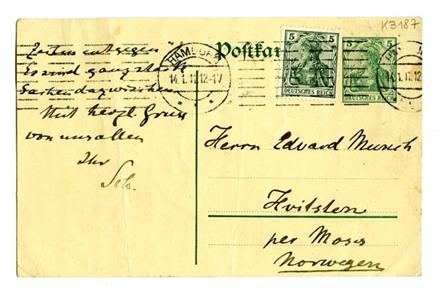 K3187
Postkar
HAMBURG
14.1.12.12-1V
5 5
DEUTSCHES REICH
5 5
DEUTSCHES REICH
Es sind ganz
Mit herzl. Gruss
von uns allen
Ihr
Sch.
Herrn Edvard Munch
Hvitsten
per Moss
Norwegen